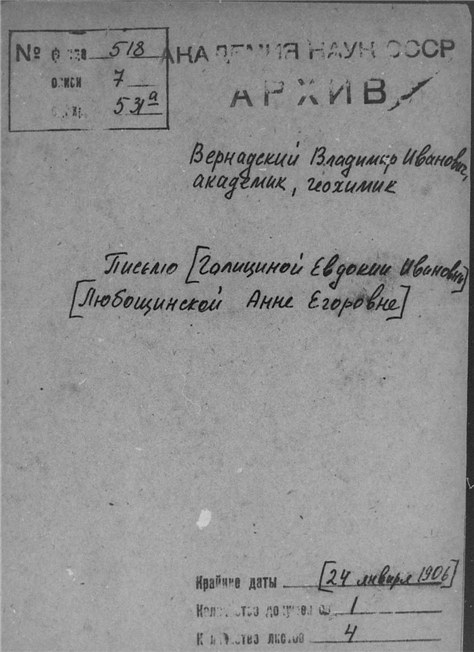 № фонда 518
описи 7
ед. хр. 53а
АКАДЕМИЯ НАУК СССР
АРХИВ
Вернадский Владимир Иванович,
академик, геохимик
Письмо [Голициной Евдокии Ивановны]
[Любощинской Анне Егоровне]
Крайние даты [24 января 1906]
Количество документов 1
Количество листов 4